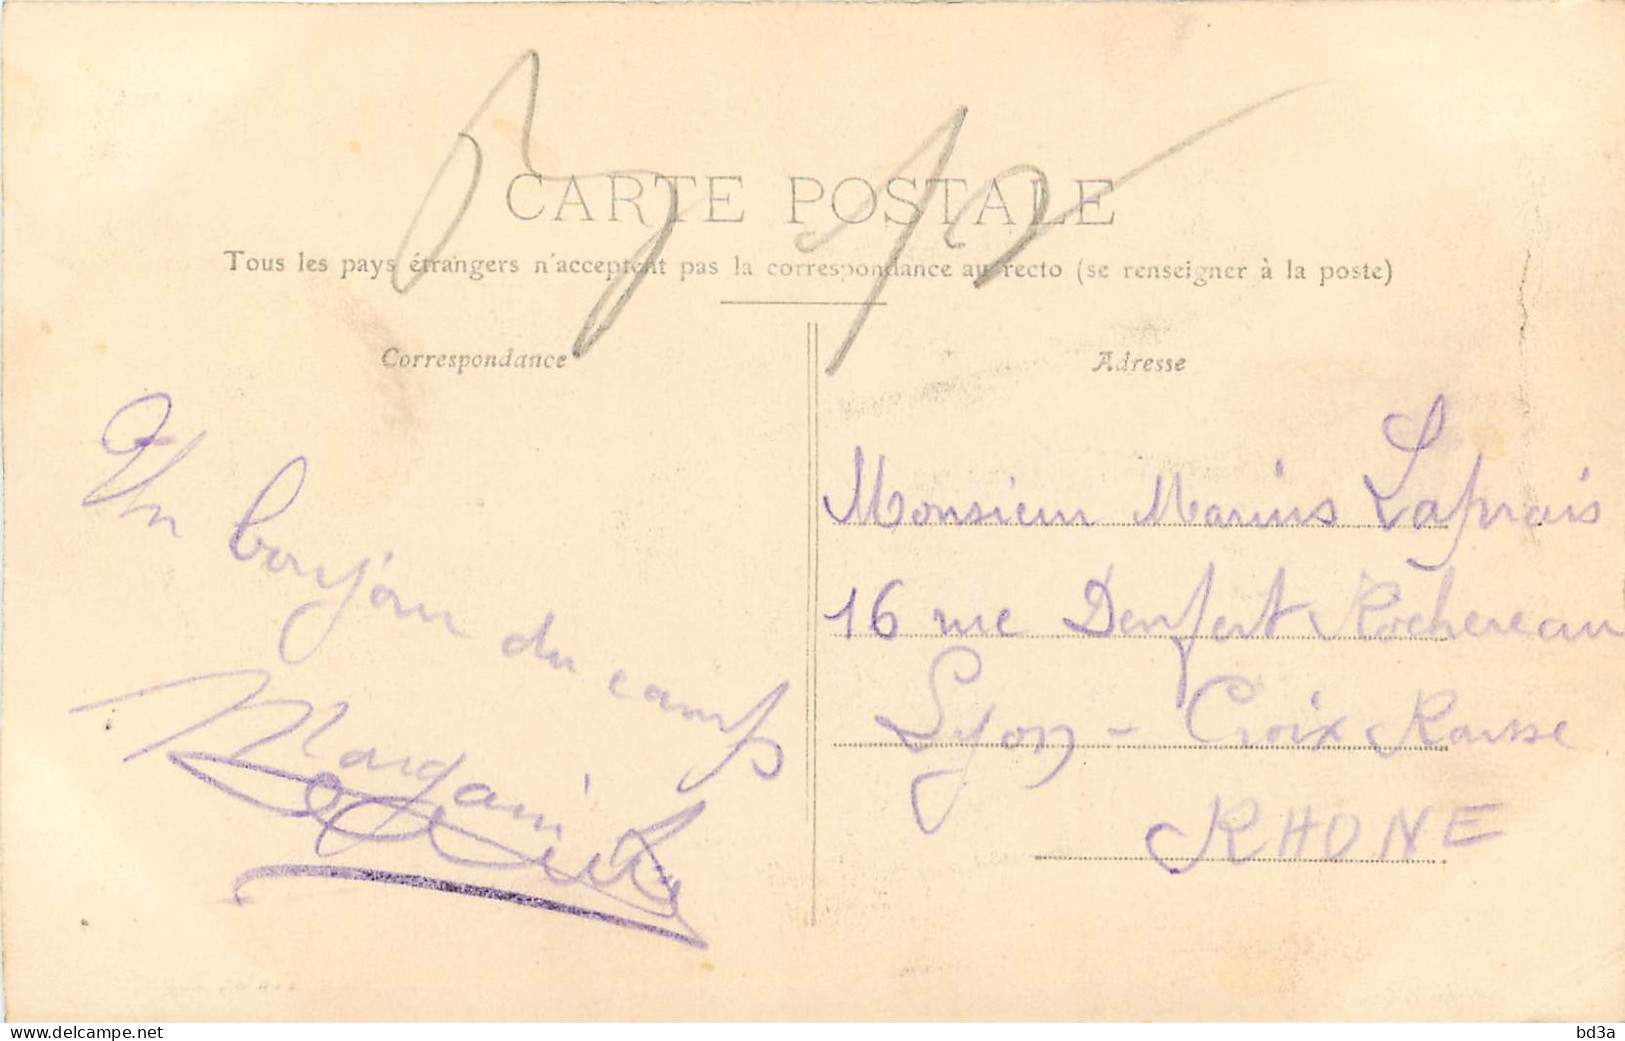 CARTE POSTALE
Tous les pays étrangers n'acceptent pas la correspondance au recto (se renseigner à la poste)
Correspondance
Un bonjour du camp
Adresse
Monsieur Marius Laprais
16 rue Denfert Rochereau
Lyon - Croix Rousse
RHONE
www.delcampe.net
bd3a